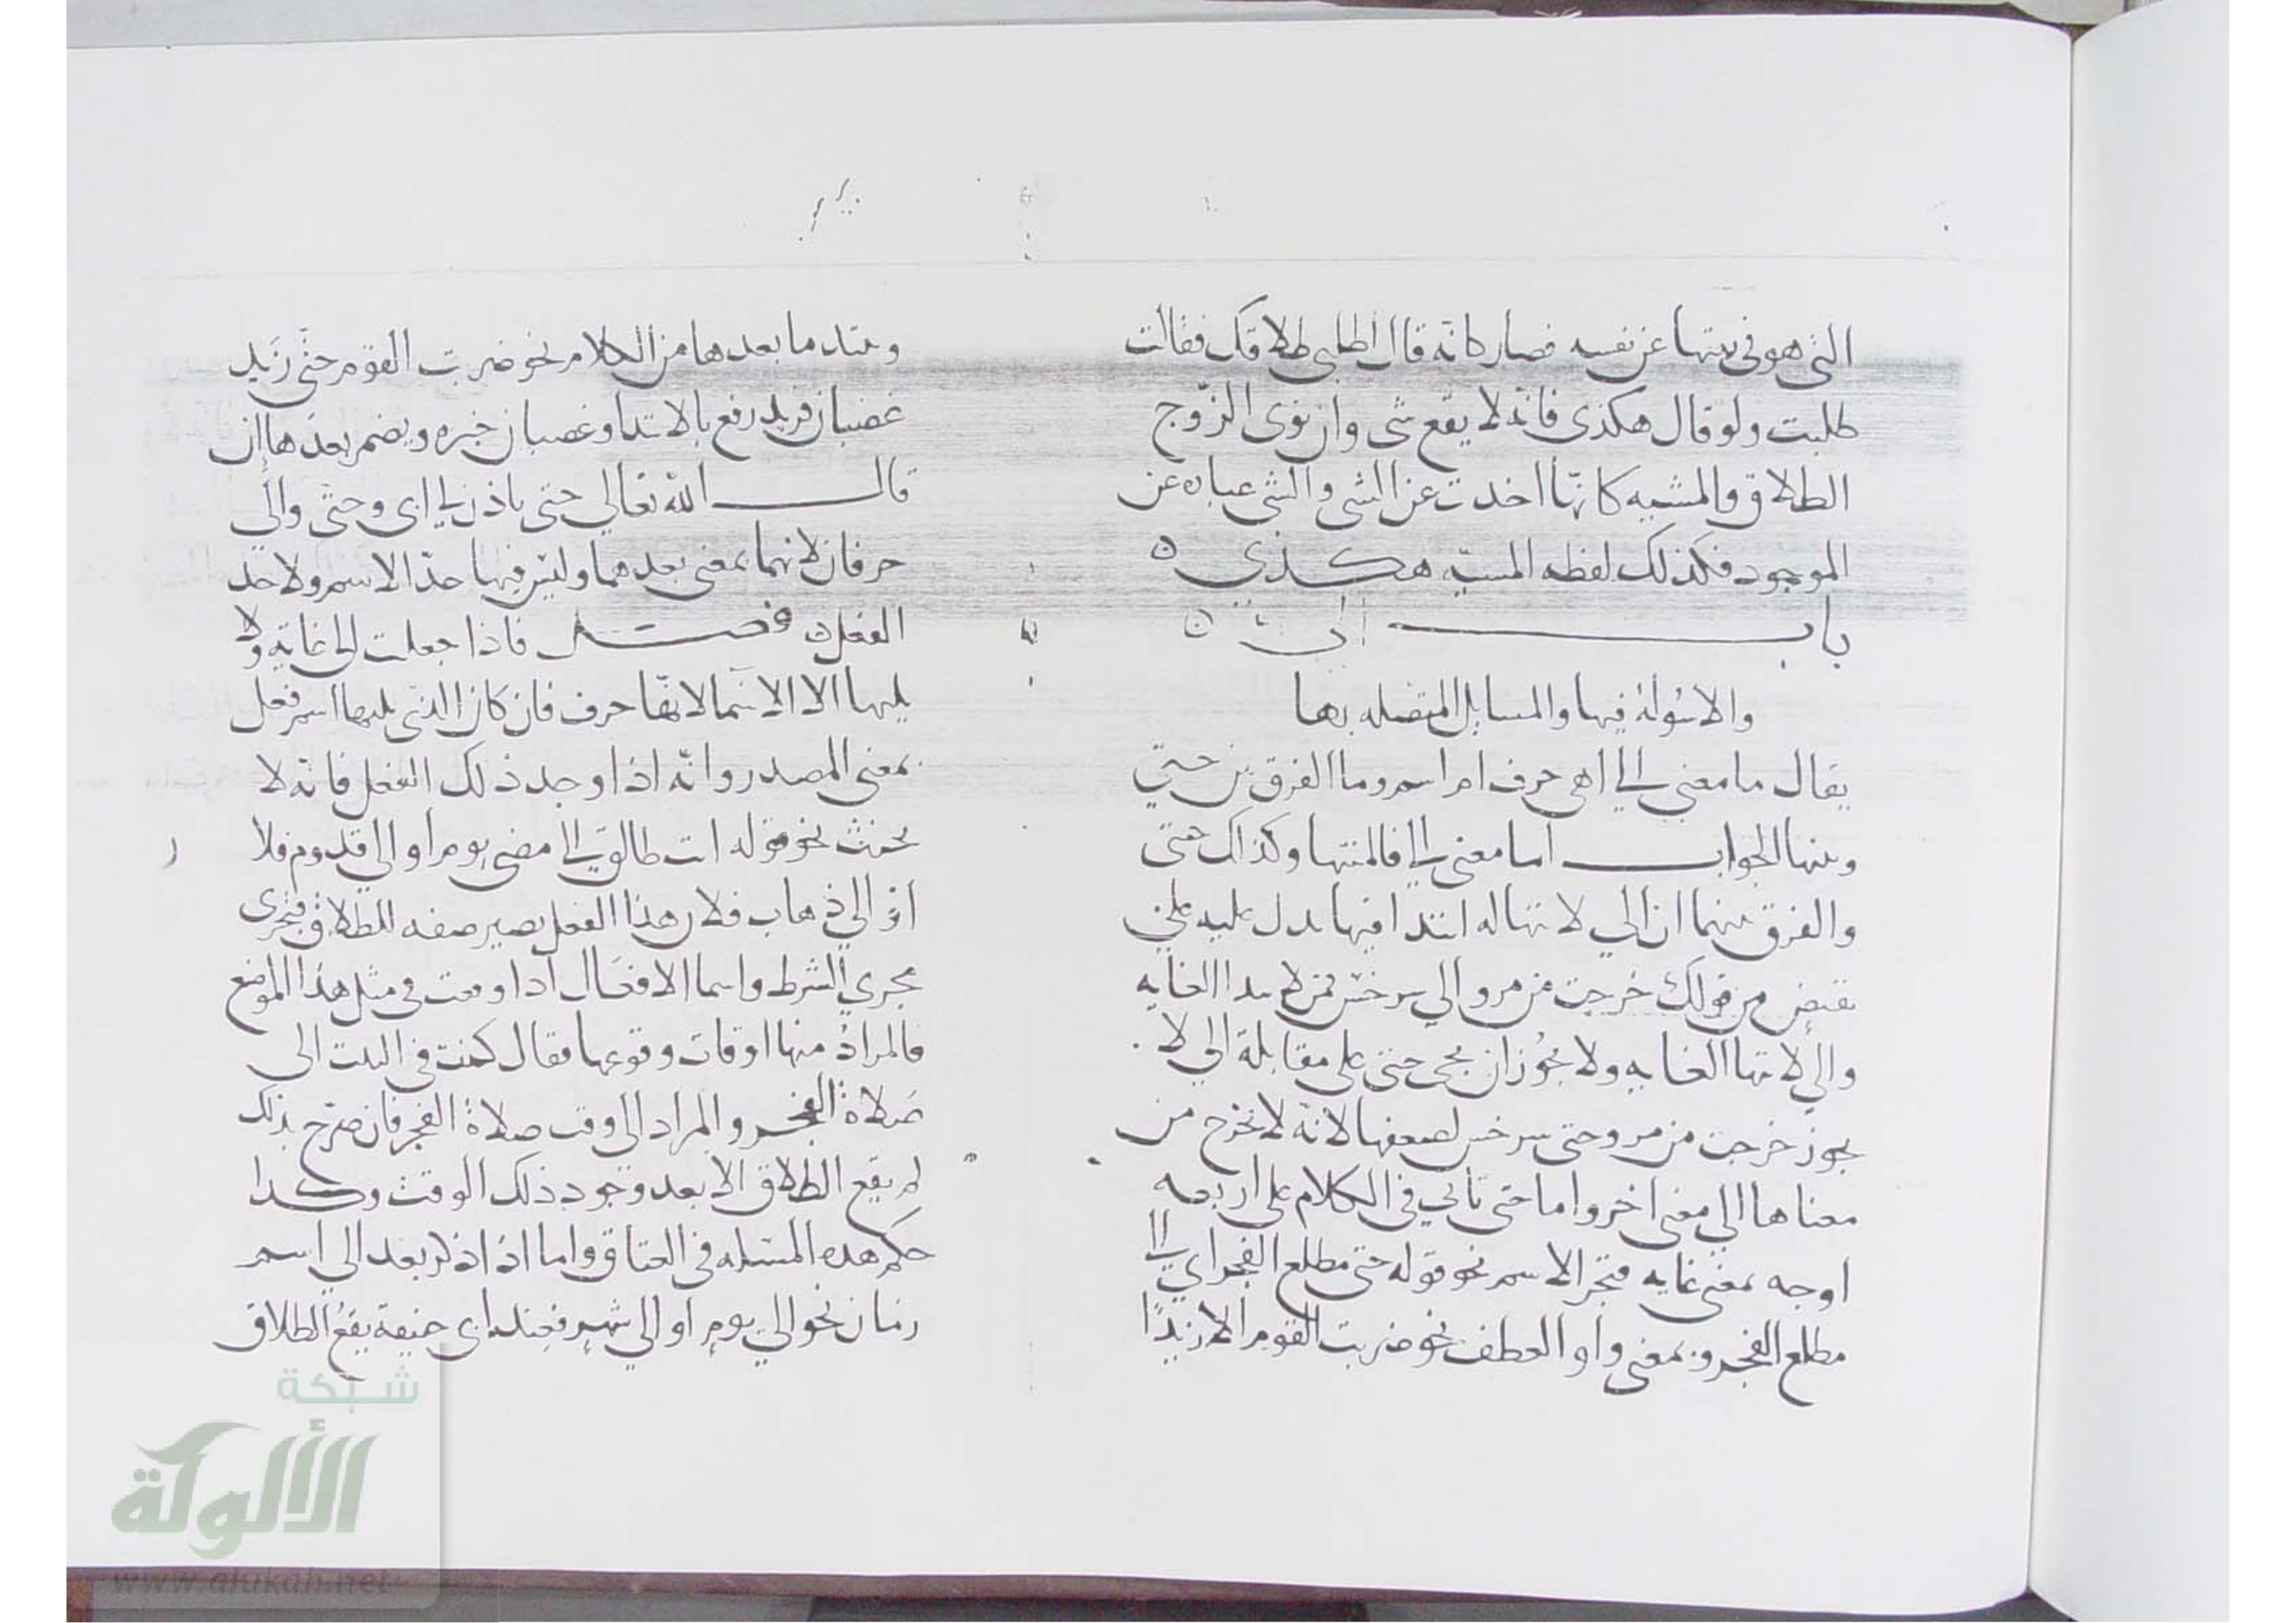 التي هو في بيتها عن نفسه فصار كانه قال اطلبي طلاقك فقالت
طلبت ولو قال هكذى فانه لا يقع شى وان نوى الزوج
الطلاق والمشبه كانها اخذت عن الشى والشى عبارة عن
الموجود فكذلك لفظه المشبه هكذي ه
باب الى ه
والاسولة فيها والمسايل المتصله بها
يقال ما معنى الى اهى حرف ام اسم وما الفرق بين حتي
وبينها الجواب اما معنى الى فالمنتها وكذاك حتى
والفرق بينهما ان الي لا نتها له ابتدا فيها يدل عليه على
نقيض من قولك خرجت من مرو الي سرخس فمن لابتدا الغايه
والي لانتها الغايه ولا يجوز ان يجى حتى على مقابلة الي لا
يجوز خرجت من مرو حتى سرخس لضعفها لانه لا تخرج من
معناها الي معنى اخر واما حتى تاتي في الكلام على اربعه
اوجه بمعنى غايه فتجر الاسم نحو قوله حتى مطلع الفجر اي الى
مطلع الفجر وبمعنى واو العطف نحو ضربت القوم الا زيدًا
ويبتدا ما بعدها من الكلام نحو ضربت القوم حتى زيد
غضبان فزيد رفع بالابتدا وغضبان خبره ويضمر بعدها ان
قال الله تعالي حتى ياذن لي ابى وحتى والي
حرفان لانهما بمعنى بعدهما وليس فيها حد الاسم ولا حد
الفعل ه فصل فاذا جعلت الى غاية ولا
يليها الا الاسما لانها حرف فان كان الذي يليها اسم فعل
بمعنى المصدر وانه اذا وجد ذلك الفعل فانه لا
يحنث نحو قوله انت طالق الى مضى يوم او الي قدوم فلا
ن او الي ذهاب فلان هذا الفعل يصير صفه للطلاق فتجرى
مجري الشرط واسما الافعال اذا وقعت في مثل هذا الموضع
فالمراد منها اوقات وقوعها فقال كنت في البيت الى
صلاة الفجر والمراد الى وقت صلاة الفجر فان صرح بذلك
لم يقع الطلاق الا بعد وجود ذلك الوقت وكذا
حكم هذه المسئله في العتاق واما اذا ذكر بعد الي اسم
زمان نحو الي يوم او الي شهر فعند ابي حنيفة يقع الطلاق
شبكة
الألوكة
www.alukah.net